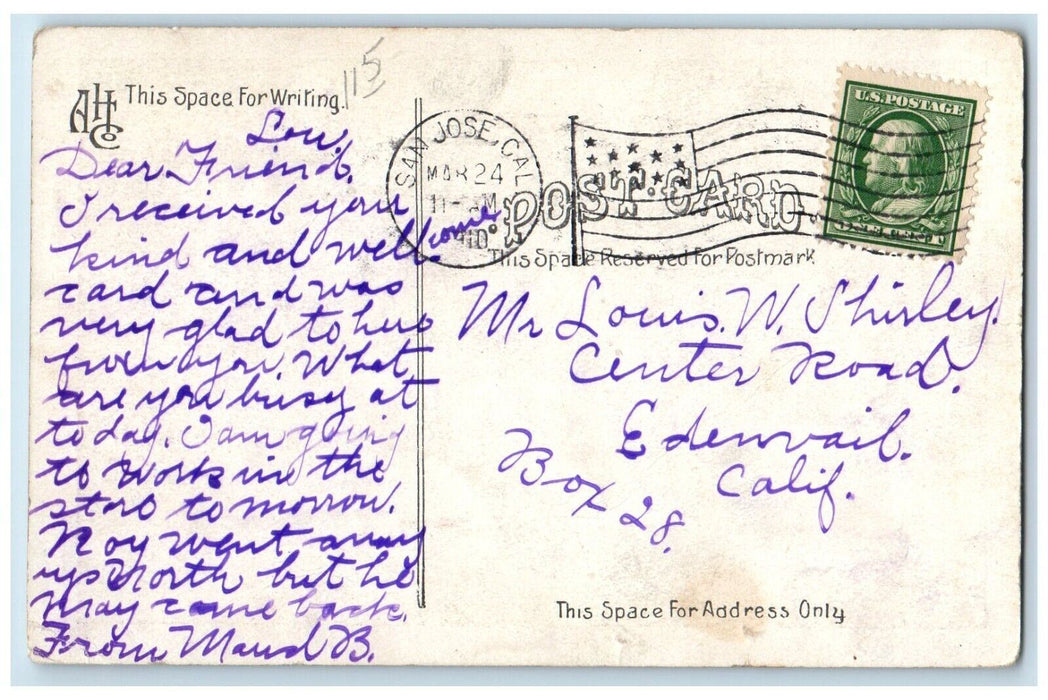 115
AHCo
This Space For Writing.
Lou.
Dear Friend.
I received your
kind and wellcome
card and was
very glad to here
from you. What
are you busy at
to day. I am going
to work in the
store to morrow.
Roy went away
up North but he
may come back.
From Maud B.
SAN JOSE, CAL.
MAR 24
11- AM
POST CARD
This Space Reserved For Postmark
U.S. POSTAGE
ONE CENT
Mr Louis. W. Shirley.
Center Road.
Edenvail.
Calif.
Box 28.
This Space For Address Only